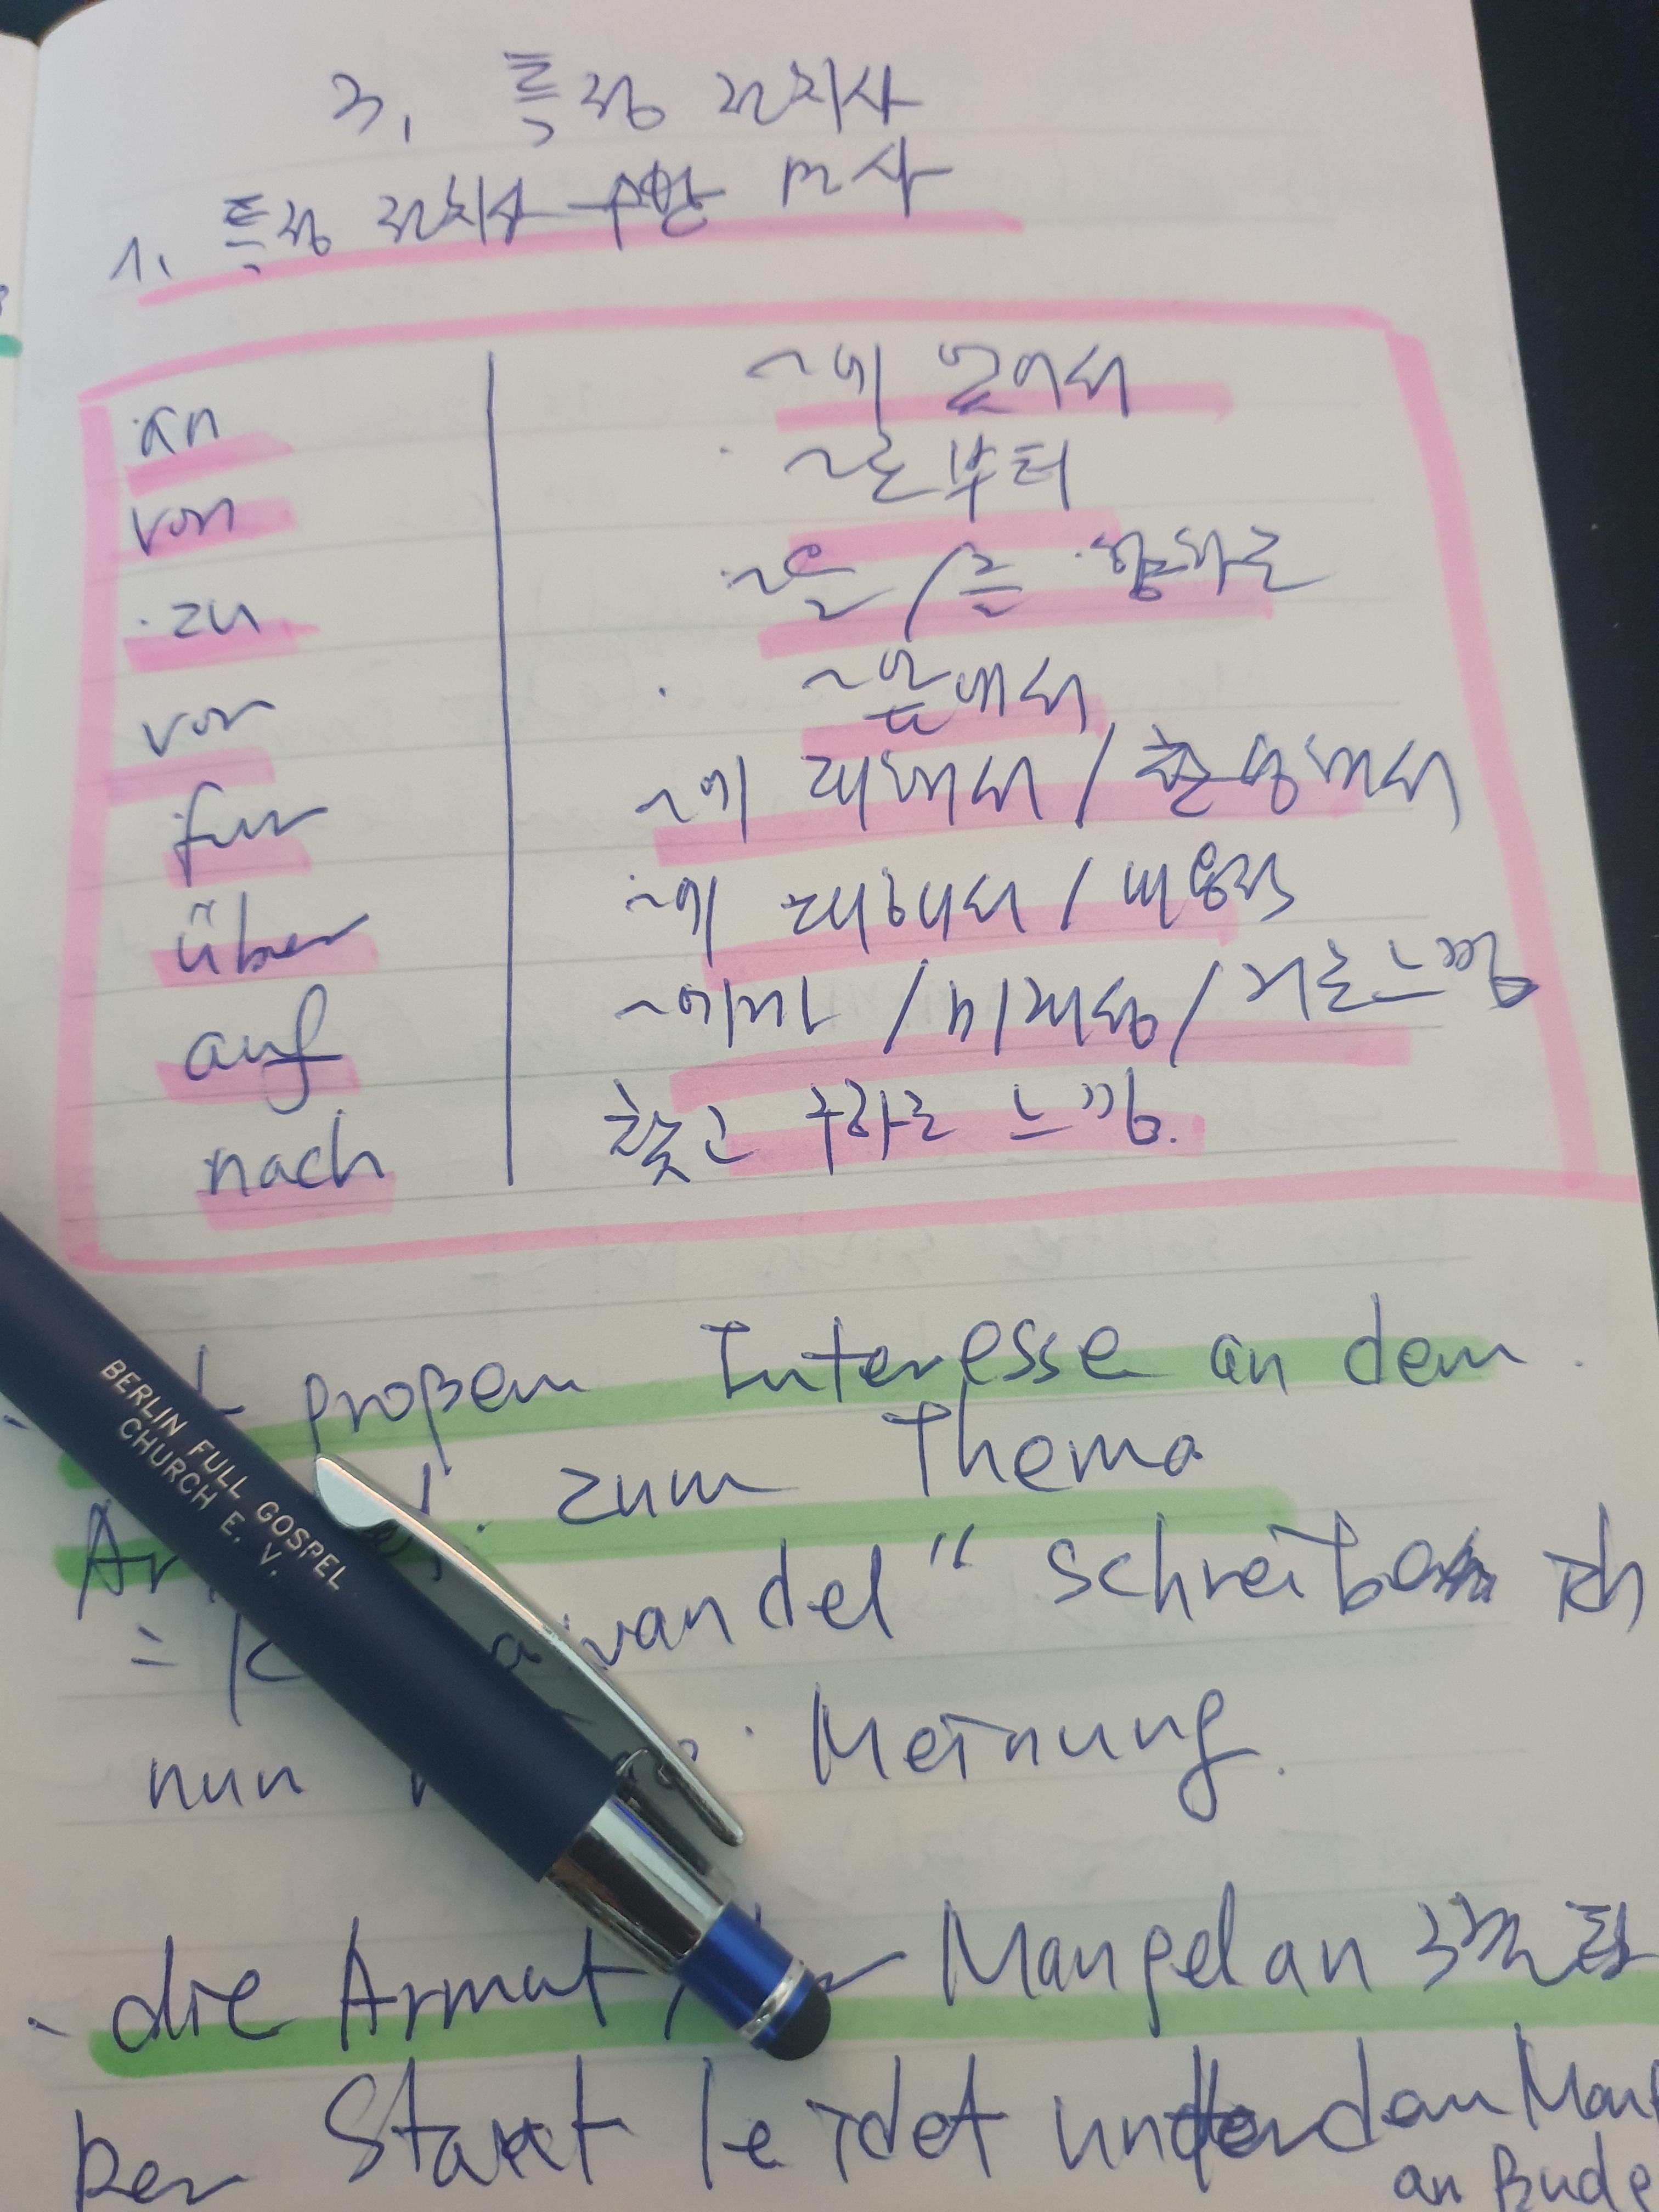 3. 특정 전치사
1. 특정 전치사 수반 명사
an ~에 있어서
von ~로부터
zu ~을/를 향하는
vor ~앞에서
fur ~에 대해서/찬성해서
über ~에 대해서/내용적
auf /미래성/거는느낌
nach 찾고 구하는 느낌.
großem Interesse an dem
zum Thema
wandel" schreibe ich
nun Meinung.
die Armut Mangel an
Der Staat leidet unter dem
an
BERLIN FULL GOSPEL
CHURCH E. V.